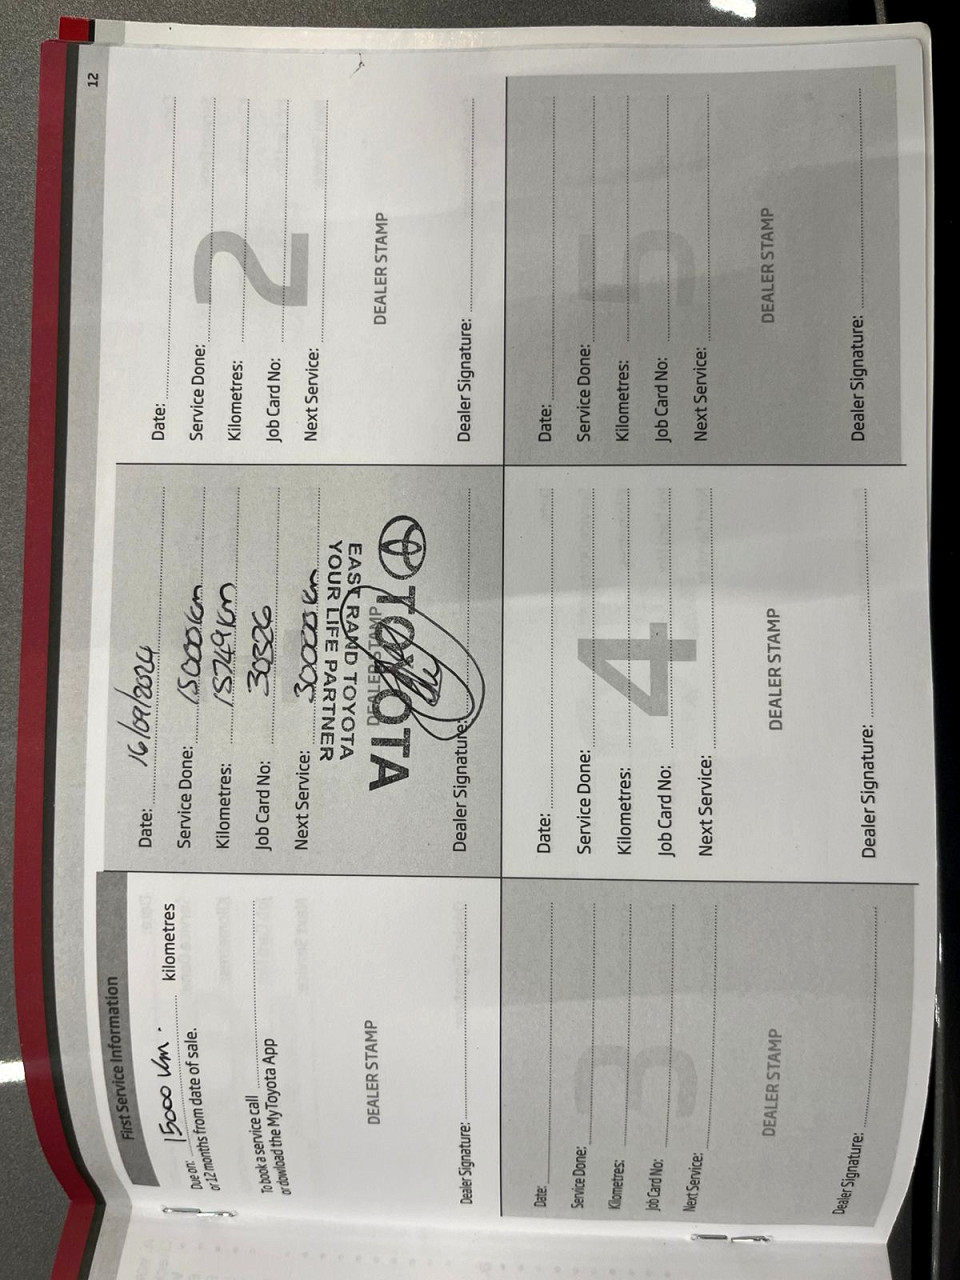 12
First Service Information
Due on: 15000 km. kilometres
or 12 months from date of sale.
To book a service call
or dowload the MyToyota App
DEALER STAMP
Dealer Signature:
Date: 16/09/2024
Service Done: 15000km
Kilometres: 15749km
Job Card No: 30326
Next Service: 30000km
YOUR LIFE PARTNER
EAST RAND TOYOTA
DEALER STAMP
TOYOTA
Dealer Signature:
2
Date:
Service Done:
Kilometres:
Job Card No:
Next Service:
DEALER STAMP
Dealer Signature:
3
Date:
Service Done:
Kilometres:
Job Card No:
Next Service:
DEALER STAMP
Dealer Signature:
4
Date:
Service Done:
Kilometres:
Job Card No:
Next Service:
DEALER STAMP
Dealer Signature:
5
Date:
Service Done:
Kilometres:
Job Card No:
Next Service:
DEALER STAMP
Dealer Signature: